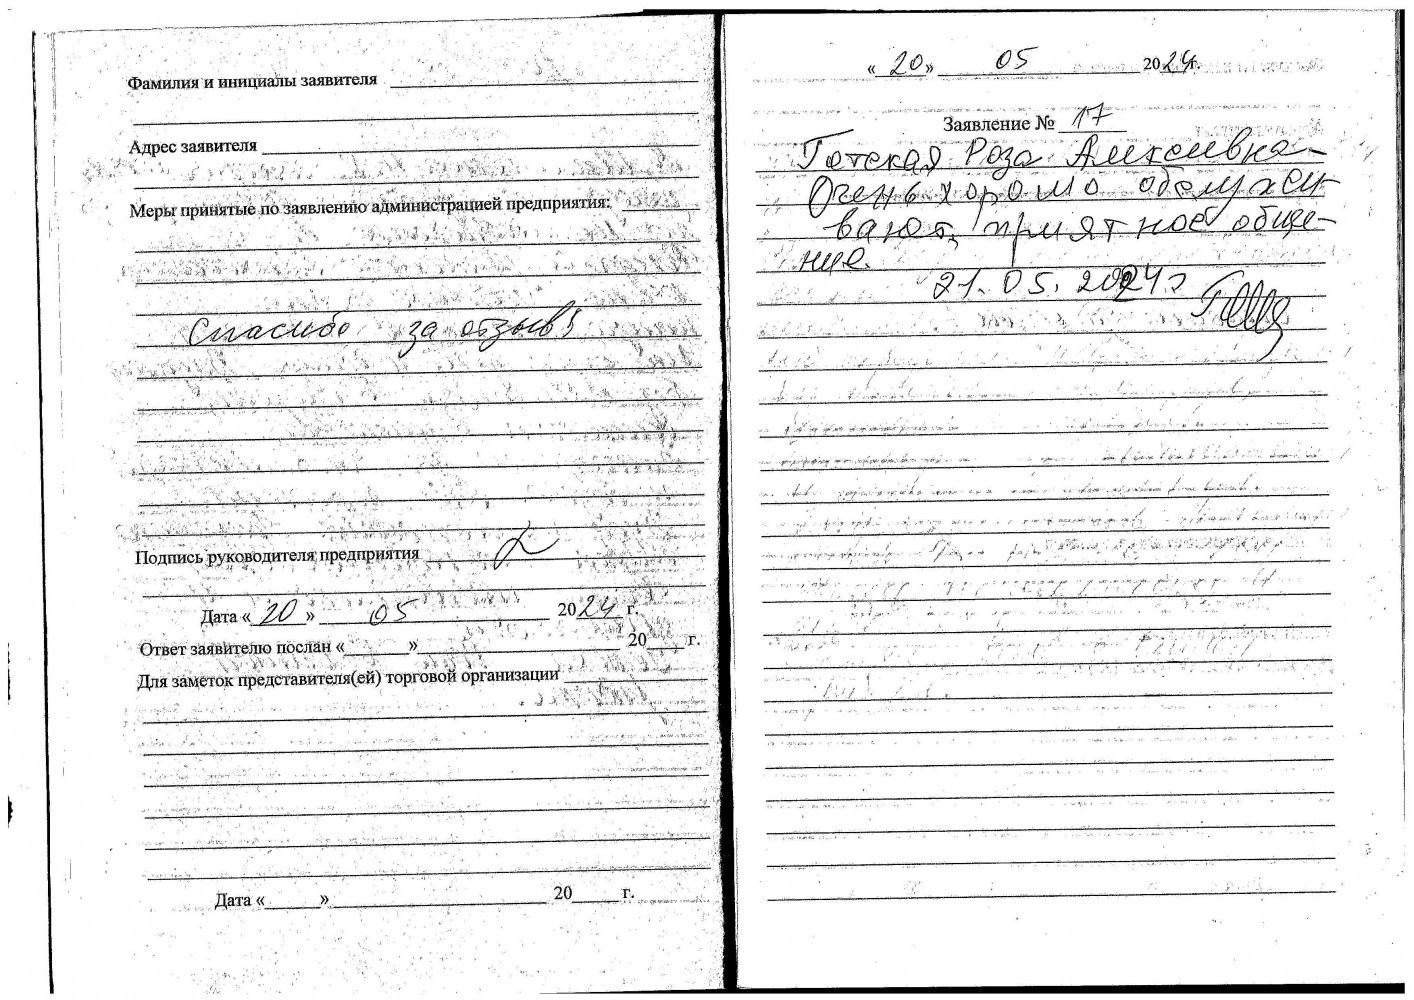 Фамилия и инициалы заявителя
Адрес заявителя
Меры принятые по заявлению администрацией предприятия:
Спасибо за отзыв!
Подпись руководителя предприятия
Дата «20» 05 2024 г.
Ответ заявителю послан « » 20 г.
Для заметок представителя(ей) торговой организации
Дата « » 20 г.
«20» 05 2024г.
Заявление № 17
Гатская Роза Алексеевна-
Очень хорошо обслужи-
вают, приятное обще-
ние.
21.05.2024г